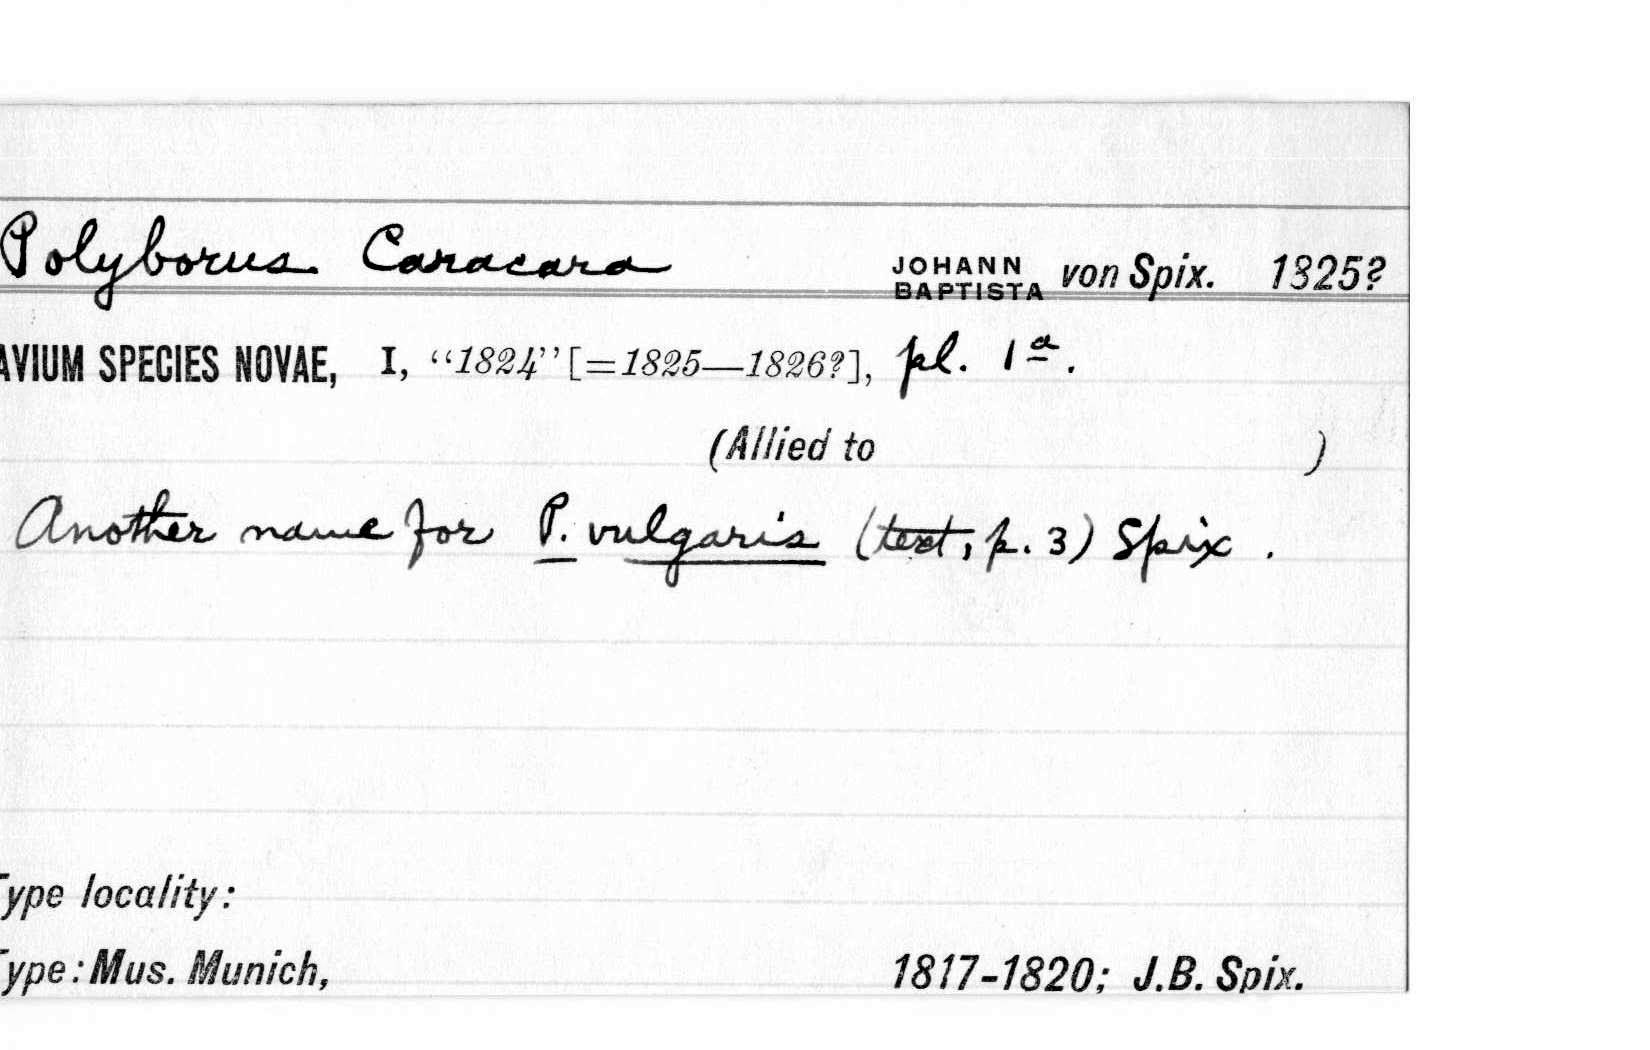 Polyborus Caracara JOHANN BAPTISTA von Spix. 1825?
AVIUM SPECIES NOVAE, I, “1824” [=1825—1826?], pl. 1ª.
(Allied to )
Another name for P. vulgaris (text, p. 3) Spix.
Type locality:
Type: Mus. Munich, 1817-1820; J.B. Spix.